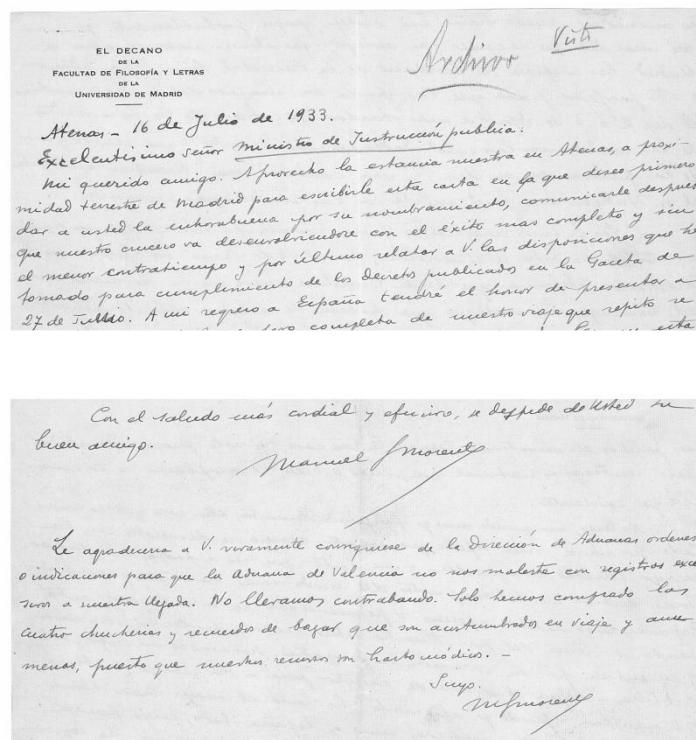 EL DECANO
DE LA
FACULTAD DE FILOSOFÍA Y LETRAS
DE LA
UNIVERSIDAD DE MADRID
Archivo
Visto
Atenas - 16 de Julio de 1933.
Excelentísimo Señor Ministro de Instrucción publica:
Mi querido amigo. Aprovecho la estancia nuestra en Atenas, a proxi-
midad terrestre de Madrid para escribirle esta carta en la que deseo primero
dar a usted la enhorabuena por su nombramiento, comunicarle despues
que nuestro crucero va desenvolviendose con el éxito mas completo y sin
el menor contratiempo y por último relatar a V. las disposiciones que he
tomado para cumplimiento de los decretos publicados en la Gaceta de
27 de Julio. A mi regreso a España tendré el honor de presentar a
completa de nuestro viaje que repito se
esta
Con el saludo más cordial y efusivo, se despide de Usted su
buen amigo.
Manuel G Morente
Le agradeceria a V. vivamente consiguiese de la Dirección de Aduanas ordenes
o indicaciones para que la Aduana de Valencia no nos moleste con registros exce
sivos a nuestra llegada. No llevamos contrabando. Solo hemos comprado las
cuatro chucherias y recuerdos de bazar que son acostumbrados en viaje y aun
menos, puesto que nuestros recursos son harto módicos. -
Suyo.
MGMorente